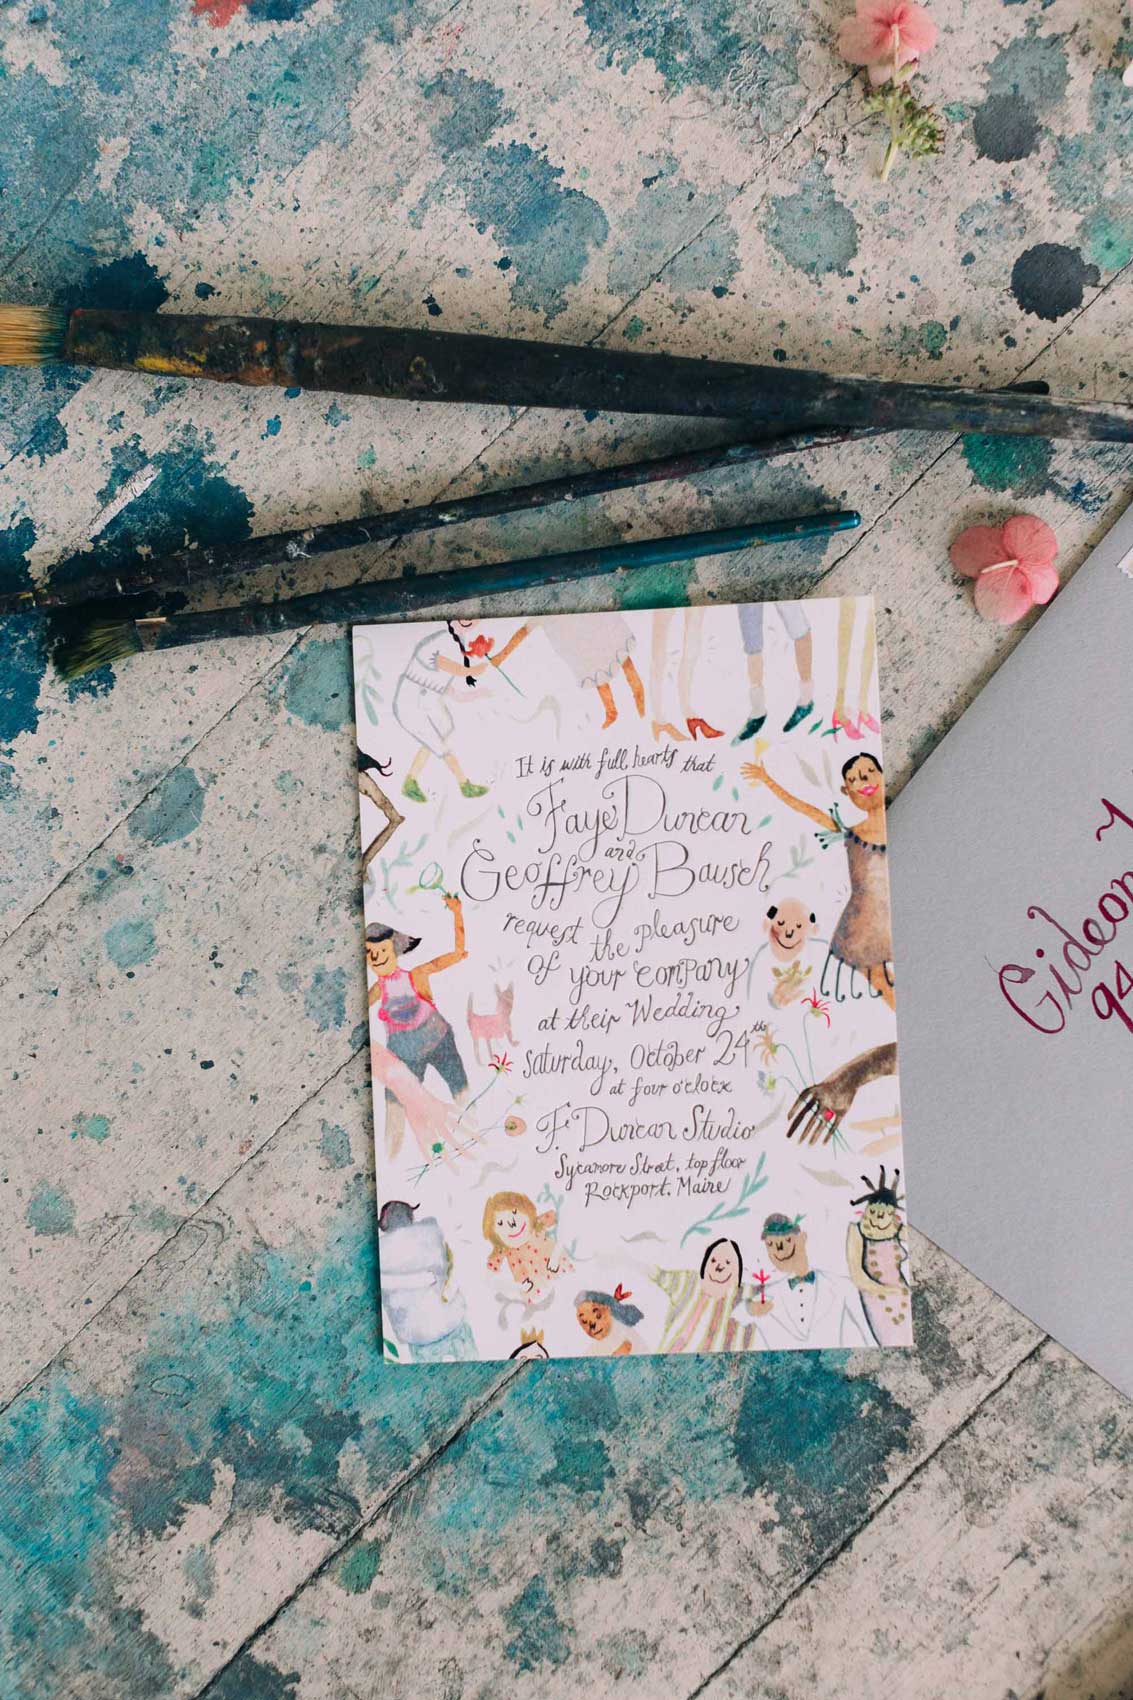 It is with full hearts that
Faye Duncan
and
Geoffrey Bausch
request the pleasure
of your company
at their Wedding
Saturday, October 24th
at four o'clock
F. Duncan Studio
Sycamore Street, top floor
Rockport, Maine
Gideon
94